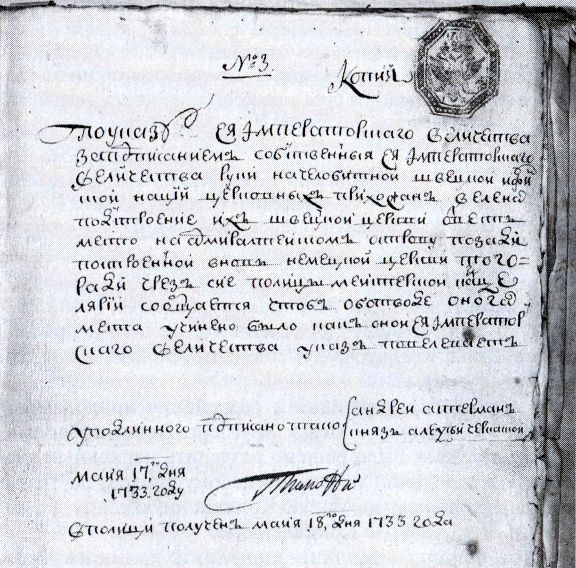 № 3 Копия
По указу Ея Императорскаго Величества
за подписаниемъ собственныя Ея Императорскаго
Величества руки на челобитной швецкой и фин
ской нации церковныхъ прихожан велено
под строение ихъ швецкой церкви отвесть
место на адмиралтейскомъ острову позади
построенной вновь немецкой церкви
чрезъ сие полицымейстерской канце
лярии сообщается чтобъ об отводе оного
места учинено было какъ оной Ея Император
скаго Величества указъ повелеваетъ
у подлинного подписано тако Андреи Остерманъ
князь Алексеи Черкаской
маия 17 дня
1733 году
В полиции полученъ маия 18 дня 1733 года